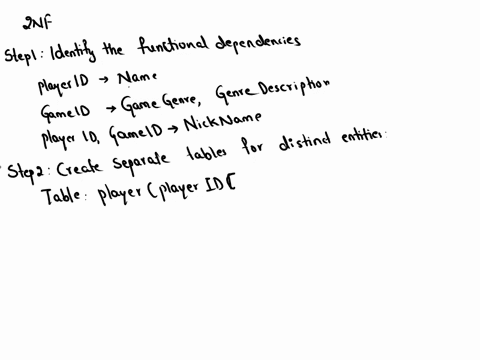 2NF
Step1: Identify the functional dependencies
playerID → Name
GameID → Game Genre, Genre Description
player ID, GameID → NickName
Step2: Create separate tables for distind entities:
Table: player (player ID (